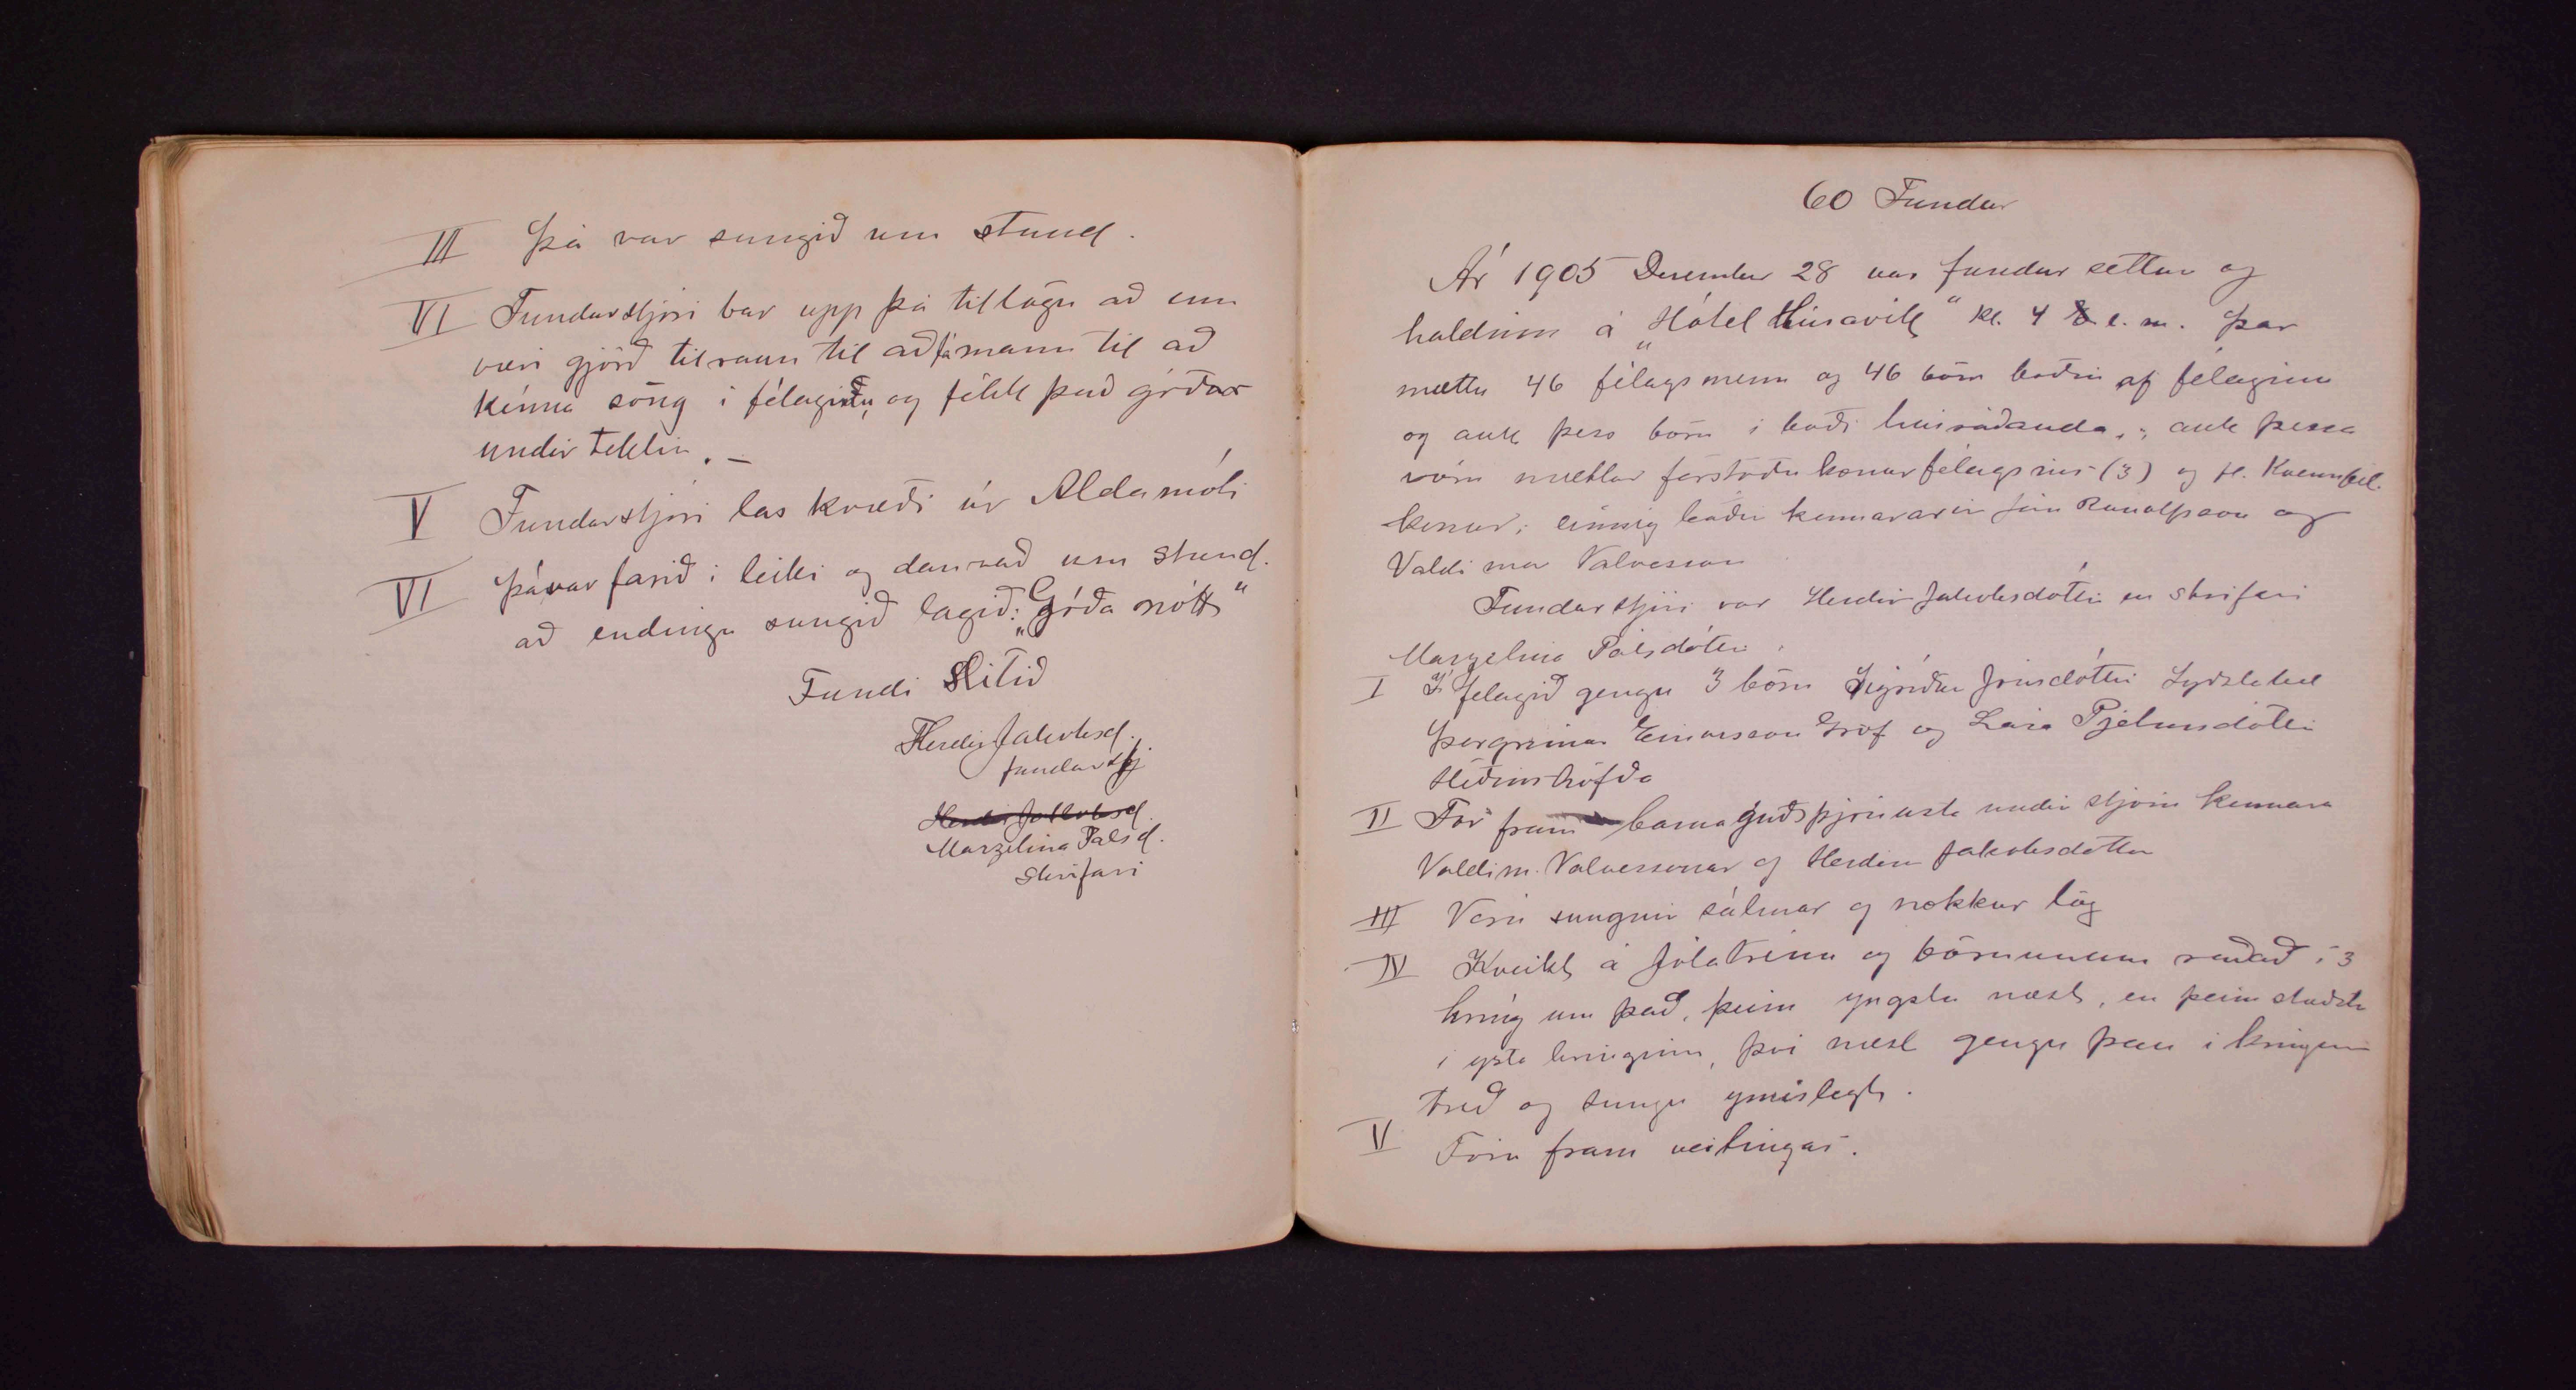 III Þá var sungið um stund.
VI Fundarstjóri bar upp þá tillögu að enn
væri gjörð tilraun til að fá mann til að
kenna söng í félaginu, og fékk það góðar
undirtektir. –
V Fundarstjóri las kvæði úr Aldamóti
VI Þá var farið í leiki og dansað um stund.
að endingu sungið lagið: „Góða nótt“
Fundi slitið
Herdís Jakobsd.
fundarstj
Herdís Jakobsd.
Marzelína Pálsd.
skrifari
60 Fundur
Ár 1905 Desember 28 var fundur settur og
haldinn á „Hótel Húsavík“ kl. 4 e.m. Þar
mættu 46 félagsmenn og 46 börn boðin af félaginu
og auk þess börn í boði húsráðanda, auk þessa
vóru mættar forstöðukonur félagsins (3) og fl. Kvennfél.
konur; einnig báðir kennararnir Jón Runólfsson og
Valdimar Valvesson
Fundarstjóri var Herdís Jakobsdóttir en skrifari
Marzelína Pálsdóttir.
I Í félagið gengu 3 börn Sigríður Jónsdóttir
Þorgrímur Einarsson Gröf og Lára Pjetursdóttir
Héðinshöfða
II Fór fram barnaguðsþjónusta undir stjórn kennara
Valdim. Valvessonar og Herdísar Jakobsdóttur
III Vóru sungnir sálmar og nokkur lög
IV Kveikt á jólatrénu og börnunum raðað í 3
hring um það, þeim yngstu næst, en þeim stærstu
í ysta hringinn, því næst gengu þau í kringum
tréð og sungu ymislegt.
V Fóru fram veitingar.